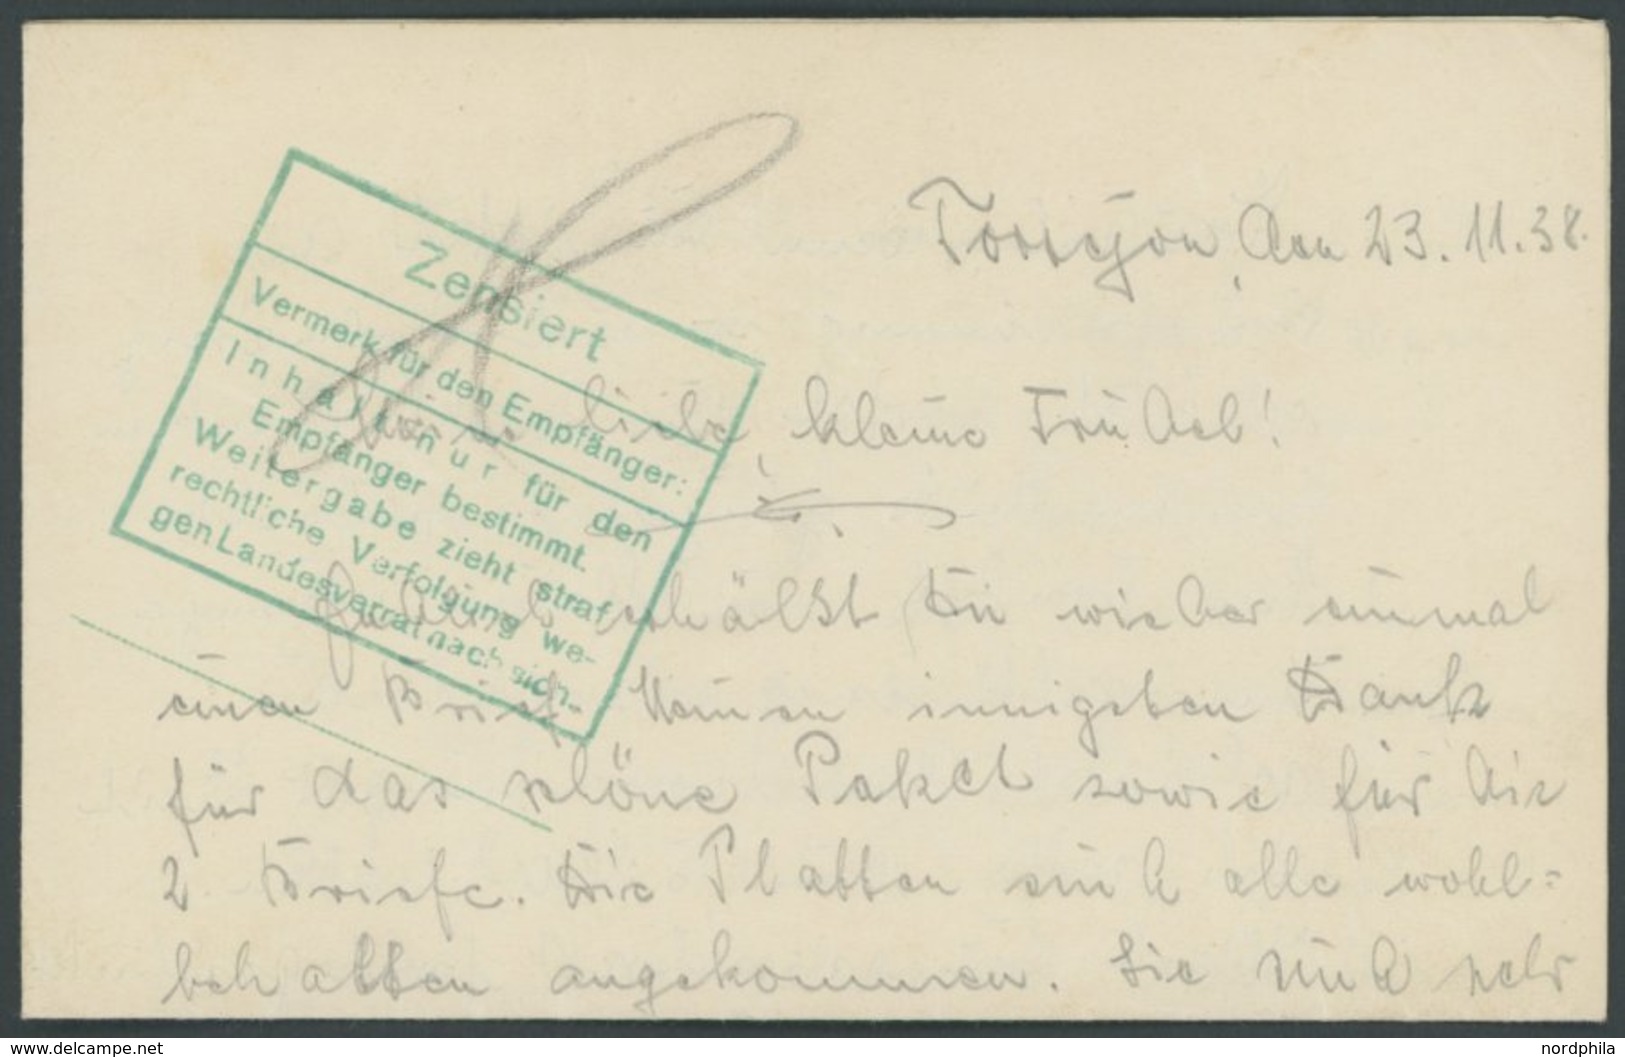 Torrejon, den 23.11.38.
Zensiert
Vermerk für den Empfänger:
Inhalt nur für den
Empfänger bestimmt.
Weitergabe zieht straf
rechtliche Verfolgung we-
gen Landesverrat nach sich.
liebe, kleine Trudel!
erhälst Du wieder einmal
einen Brief. Meinen innigsten Dank
für das schöne Paket sowie für die
2 Briefe. Die Platten sind alle wohl=
behalten angekommen. Sie sind sehr
www.delcampe.net
nordphila